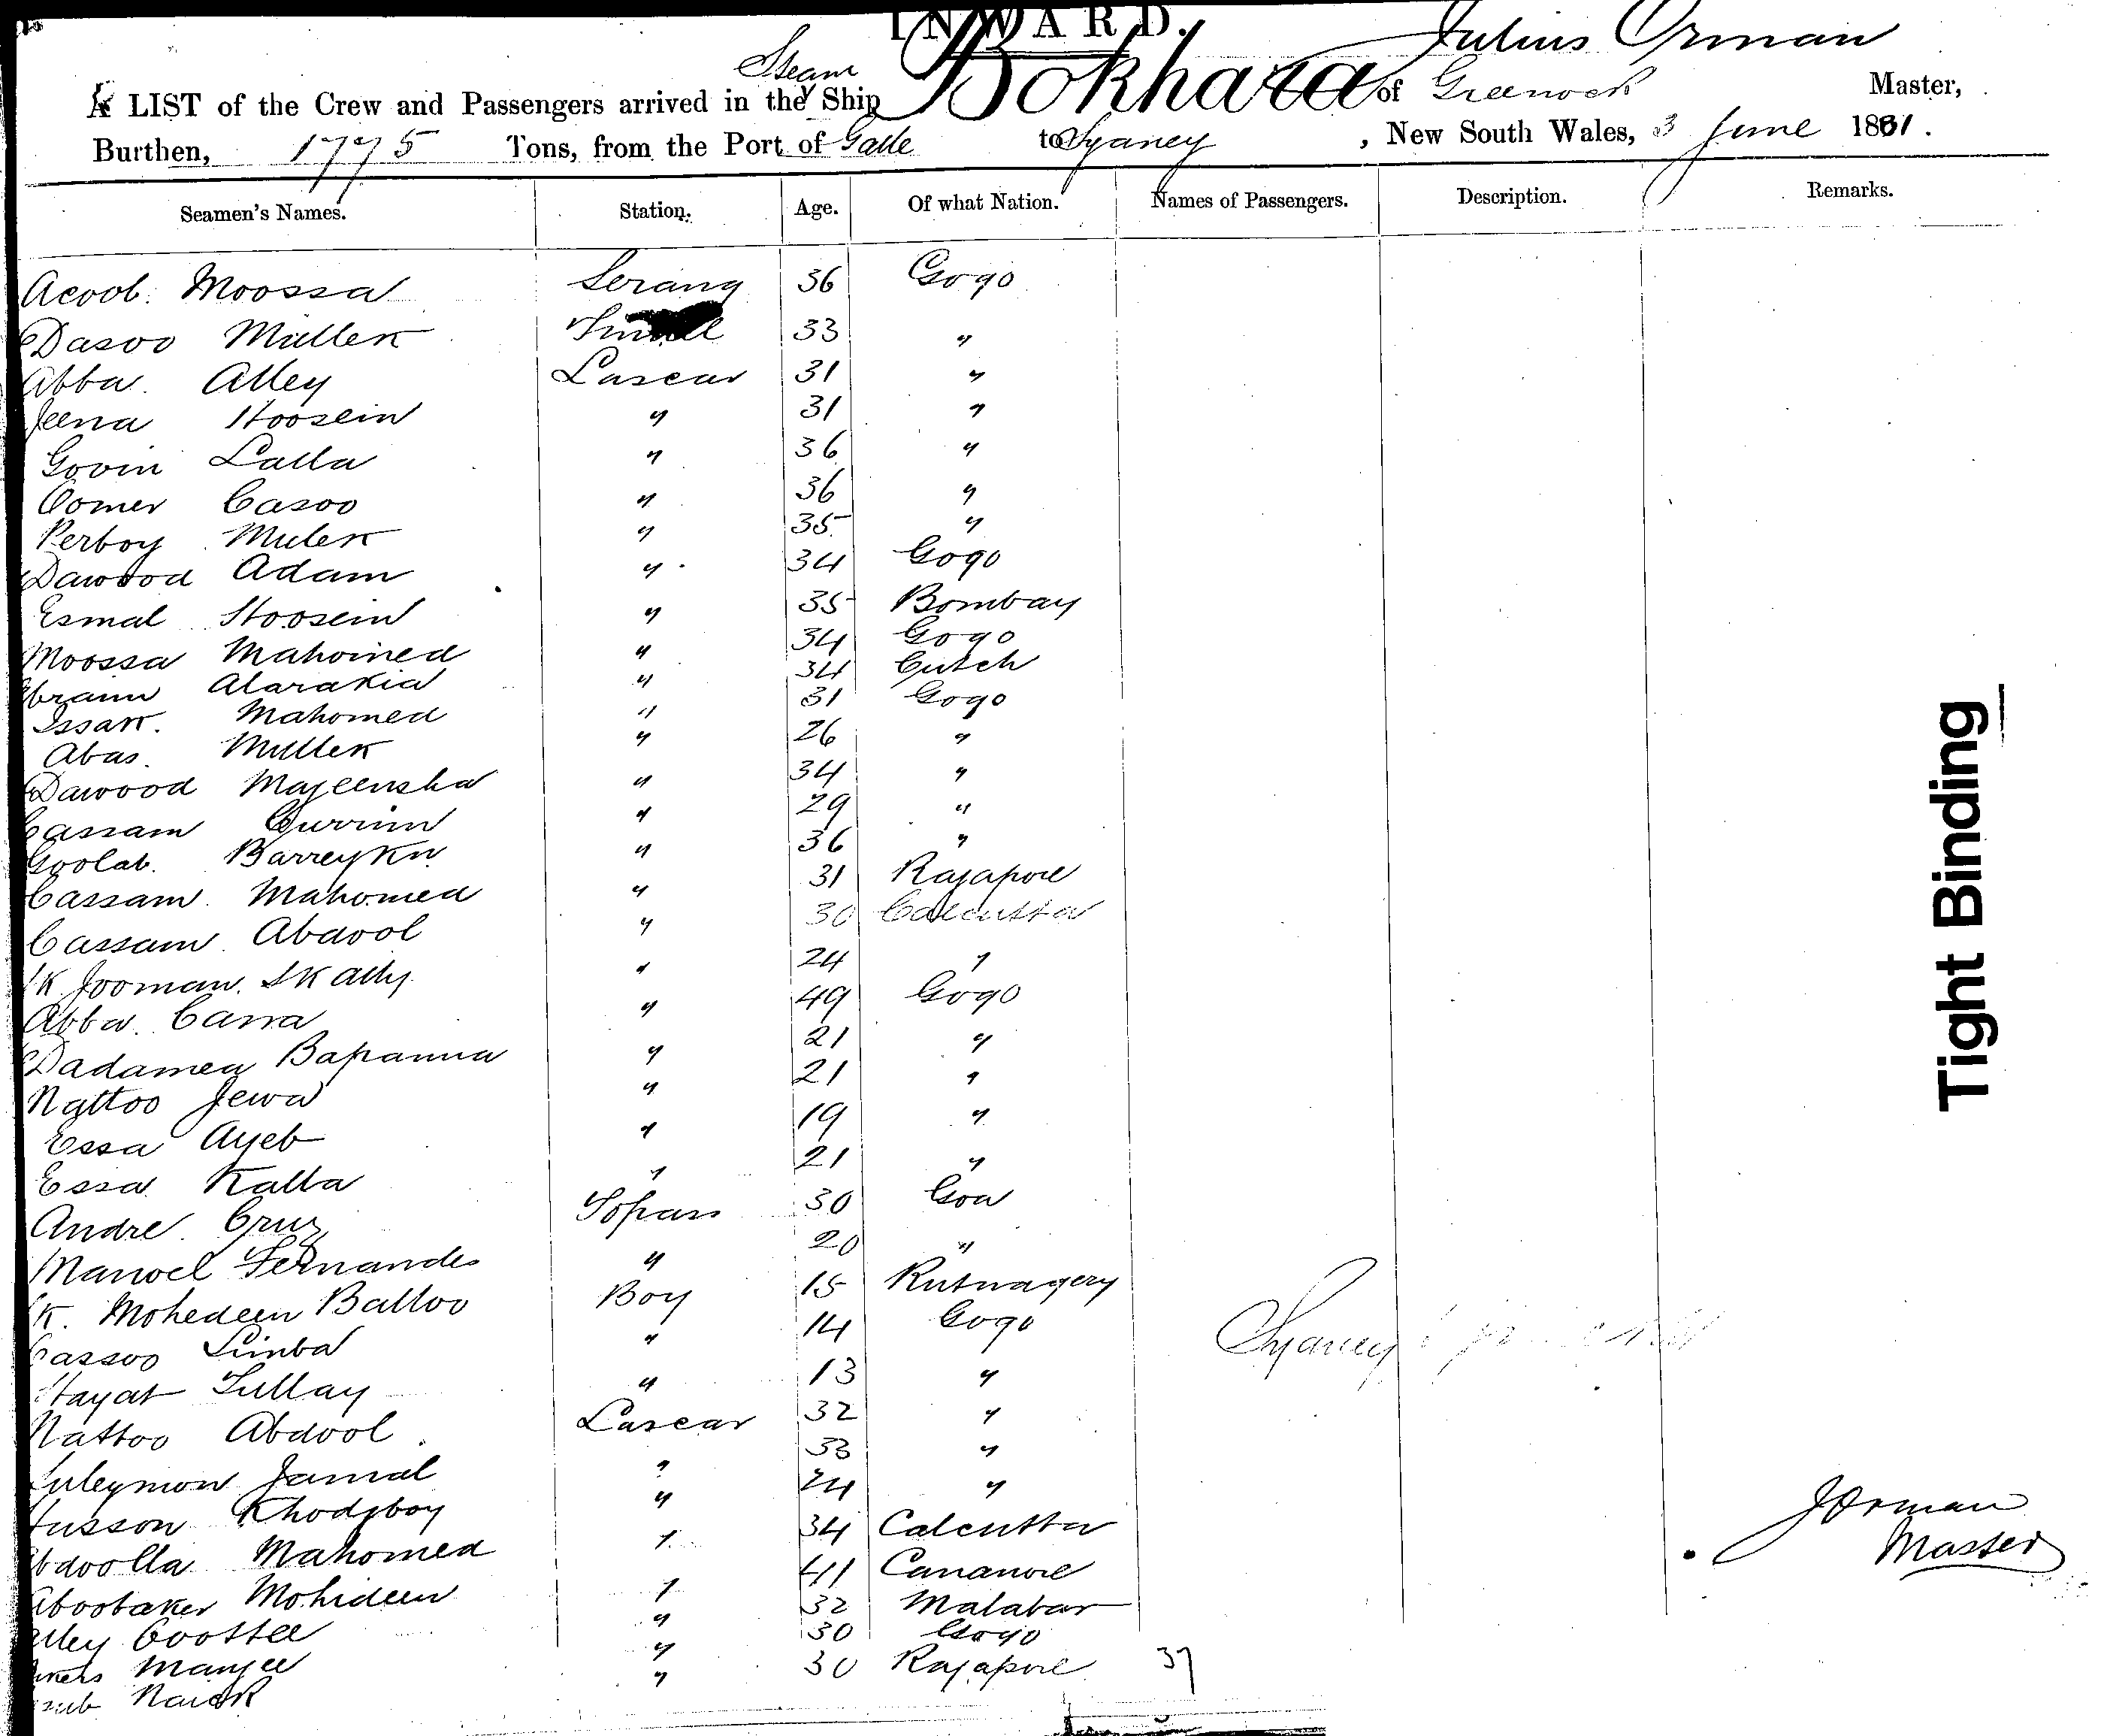 INWARD.
Julius Orman
Steam
A LIST of the Crew and Passengers arrived in the Ship Bokhara of Greenock Master,
Burthen, 1775 Tons, from the Port of Galle to Sydney , New South Wales, 3 June 1881.
Seamen's Names. Station. Age. Of what Nation. Names of Passengers. Description. Remarks.
Acoob. Moossa Serang 36 Gogo
Dasoo Mullek 33 "
Abba. Alley Lascar 31 "
Jeena Hoosein " 31 "
Govin Lalla " 36 "
Oomer Casoo " 36 "
Perboy Mulek " 35 "
Dawood Adam " 34 Gogo
Esmal Hoosein " 35 Bombay
Moossa Mahomed " 34 Gogo
Alarakia " 34 Cutch
Issak. Mahomed " 31 Gogo
Abas. Mullek " 26 "
Dawood Majeensha " 34 "
Cassam Currim " 29 "
Goolab. " 36 "
Cassam. Mahomed " 31 Rajapore
Cassam Abdool " 30 Calcutta
Jooman. SK Ally " 24 "
Abba. Carra " 49 Gogo
Dadamea Bapanna " 21 "
Nattoo Jewa " 21 "
Essa Ayeb " 19 "
Essa Kalla " 21 "
Andre. Cruz Topass 30 Goa
Manoel Fernandes " 20 "
K. Mohedeen Balloo Boy 15 Rutnagery
Cassoo Limba " 14 Gogo
Hayat Sullay " 13 "
Nattoo Abdool Lascar 32 "
Suleymon Jamal " 33 "
Husson Khodjboy " 24 "
Abdoolla Mahomed " 34 Calcutta
Abobaker Mohideen " 41 Cananore
Alley Coottee " 32 Malabar
Manjee " 30 Gogo
Naick " 30 Rajapore 37
Sydney
JOrman
Master
Tight Binding